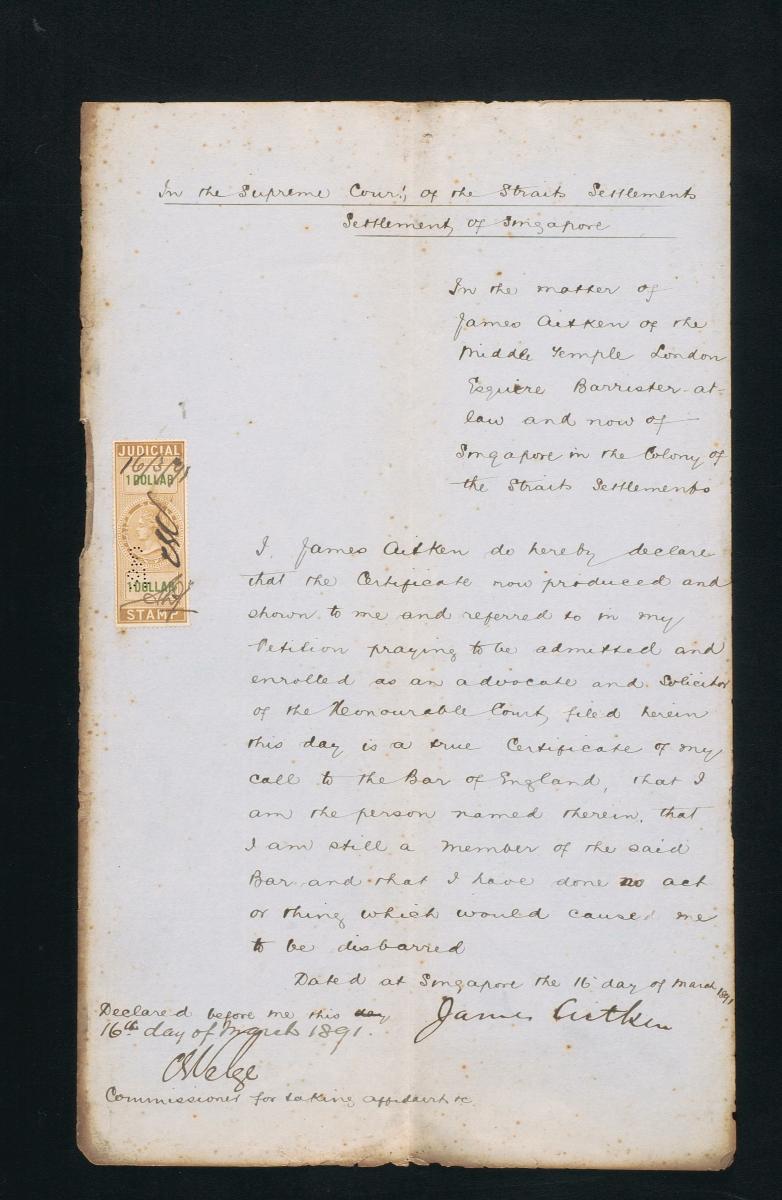 In the Supreme Court of the Straits Settlements
Settlement of Singapore
In the matter of
James Aitken of the
Middle Temple London
Esquire Barrister-at-
law and now of
Singapore in the Colony of
the Straits Settlements
JUDICIAL
16/3/91
1 DOLLAR
1 DOLLAR
STAMP
I, James Aitken do hereby declare
that the Certificate now produced and
shown to me and referred to in my
Petition praying to be admitted and
enrolled as an advocate and Solicitor
of the Honourable Court, filed herein
this day is a true Certificate of my
call to the Bar of England, that I
am the person named therein, that
I am still a member of the said
Bar and that I have done no act
or thing which would cause me
to be disbarred
Dated at Singapore the 16 day of March 1891
James Aitken
Declared before me this day
16th day of March 1891.
Commissioner for taking affidavits &c